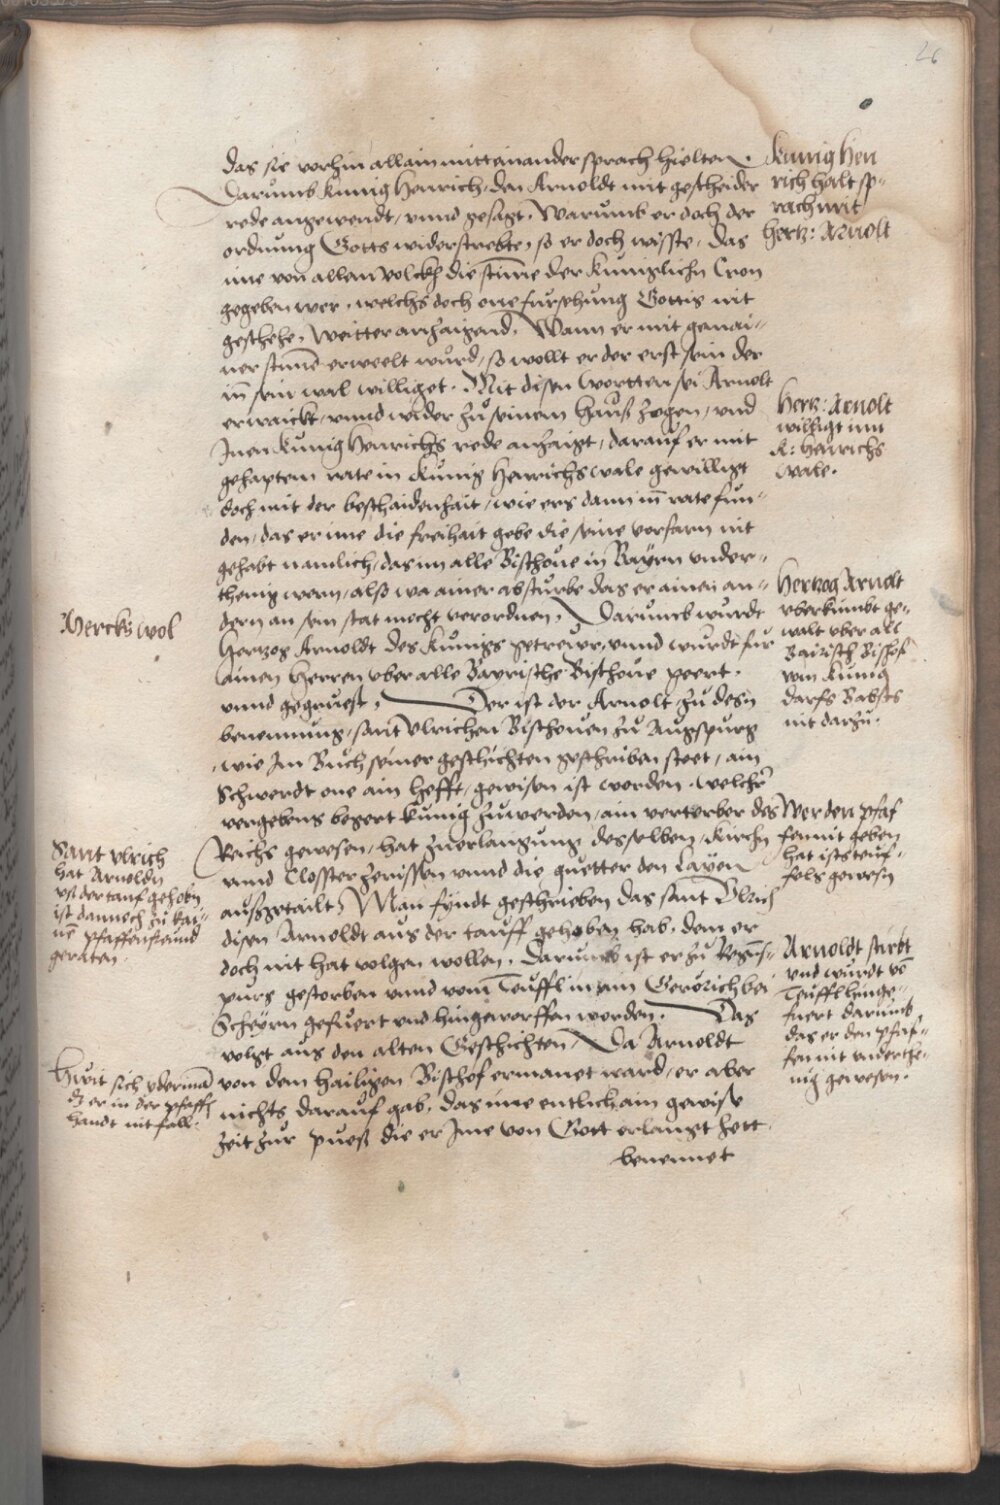 26
das sie vorhin allain mitteinander sprach hielten.
Darumb kunig Henrich, den Arnoldt mit gescheider
rede angewendt, vnnd gesagt, Warumb er doch der
ordnung Gotts widerstrebte, so er doch wisste, das
ime von allem volckh die stime der kuniglichn Cron
gegeben wer, welchs doch one fursehung Gottis nit
geschehe, Weitter anzaigend, Wann er mit gemai-
ner stime erweelt wurd, so wollt er der erst sein der
in sein wal williget. Mit disen wortten sei Arnolt
erwaickt, vnnd wider zu seinem hauß zogen, vnd
Inen kunig Henrichs rede anzaigt, darauf er mit
gehaptem rate in kunig Henrichs wale gewilligt
doch mit der beschaidenhait, wie ers dann im rate fun-
den, das er ime die freihait gebe die seine vorfarn nit
gehabt namlich, das im alle Bischoue in Bayrn vnder-
thenig wern, also wa ainer absturbe das er ainen an-
dern an sein stat mocht verordnen. Darumb wurdt
Hertzog Arnoldt des kunigs getrewer, vnnd wurdt fur
ainen Herren vber alle Bayrische Bischoue geert.
vnnd gegruest. Der ist der Arnolt, zu desn
benennung, sant Vlrichen Bischouen zu Augspurg
wie Im Buch seiner geschichten geschriben steet, ain
Schwerdt one ain hefft, gewisen ist worden. welcher
vergebens begert kunig zuwerden, ain verterber des
Reichs gewesen, hat zuerlangung desselben, kirchn
vnnd Closster zerissen vnnd die guetter den Layen
außgetailt, Man fyndt geschrieben das sant Vlrich
disen Arnoldt aus der tauff gehoben hab, dem er
doch nit hat volgen wollen. Darumb ist er zu Regens-
purg gestorben vnnd vom Teuffl in ain Gerorich bei
Scheyrn gefuert vnd hingeworffen worden. Das
volgt aus den alten Geschichten, Da Arnoldt
von dem hailigen Bischof ermanet ward, er aber
nichts darauf gab, das ime entlich ain gewise
zeit zur puess die er Ime von Gott erlangt hett
benennet
kunig Hen
rich halt sp-
rach mit
hertz: Arnolt
Hertz: Arnolt
willigt inn
K: Heinrichs
wale.
Hertzog Arnolt
vberkumbt ge-
walt vber all
Bairisch Bischof
vom kunig
darfs Babsts
nit darzu.
Wer den pfaf
fen nit geben
hat ist teuf-
fels gewesn
Arnoldt stirbt
vnd wurdt vo
Teuffl hinge-
fuert darumb
das er den pfaf-
fen nit vnderthe-
nig gewesen.
Mercks wol
Sant vlrich
hat Arnoldn
vß der tauf gehobn
ist dannoch zu kai-
nem pfaffenfreund
geraten.
Huit sich yderman
dz er in der pfaffn
handt nit fall.